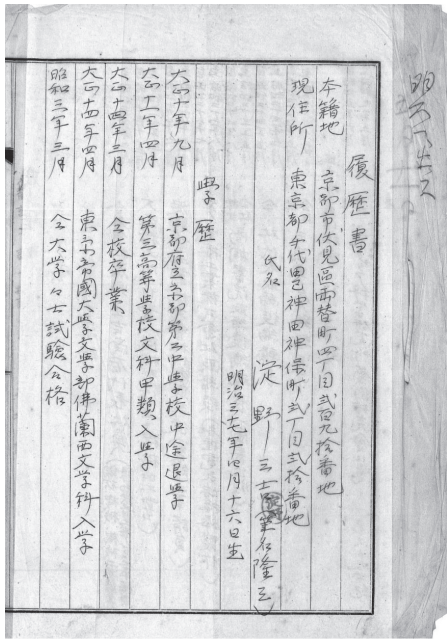 履歴書
本籍地 京都市伏見區両替町四丁目弐百九拾番地
現住所 東京都千代田區神田神保町弐丁目弐拾番地
氏名 淀野三吉 筆名隆三
明治三十七年四月十六日生
學歴
大正十年九月 京都府立京都第二中学校中途退学
大正十一年四月 第三高等学校文科甲類入学
大正十四年三月 仝校卒業
大正十四年四月 東京帝國大学文学部佛蘭西文学科入学
昭和三年三月 仝大学々士試驗合格